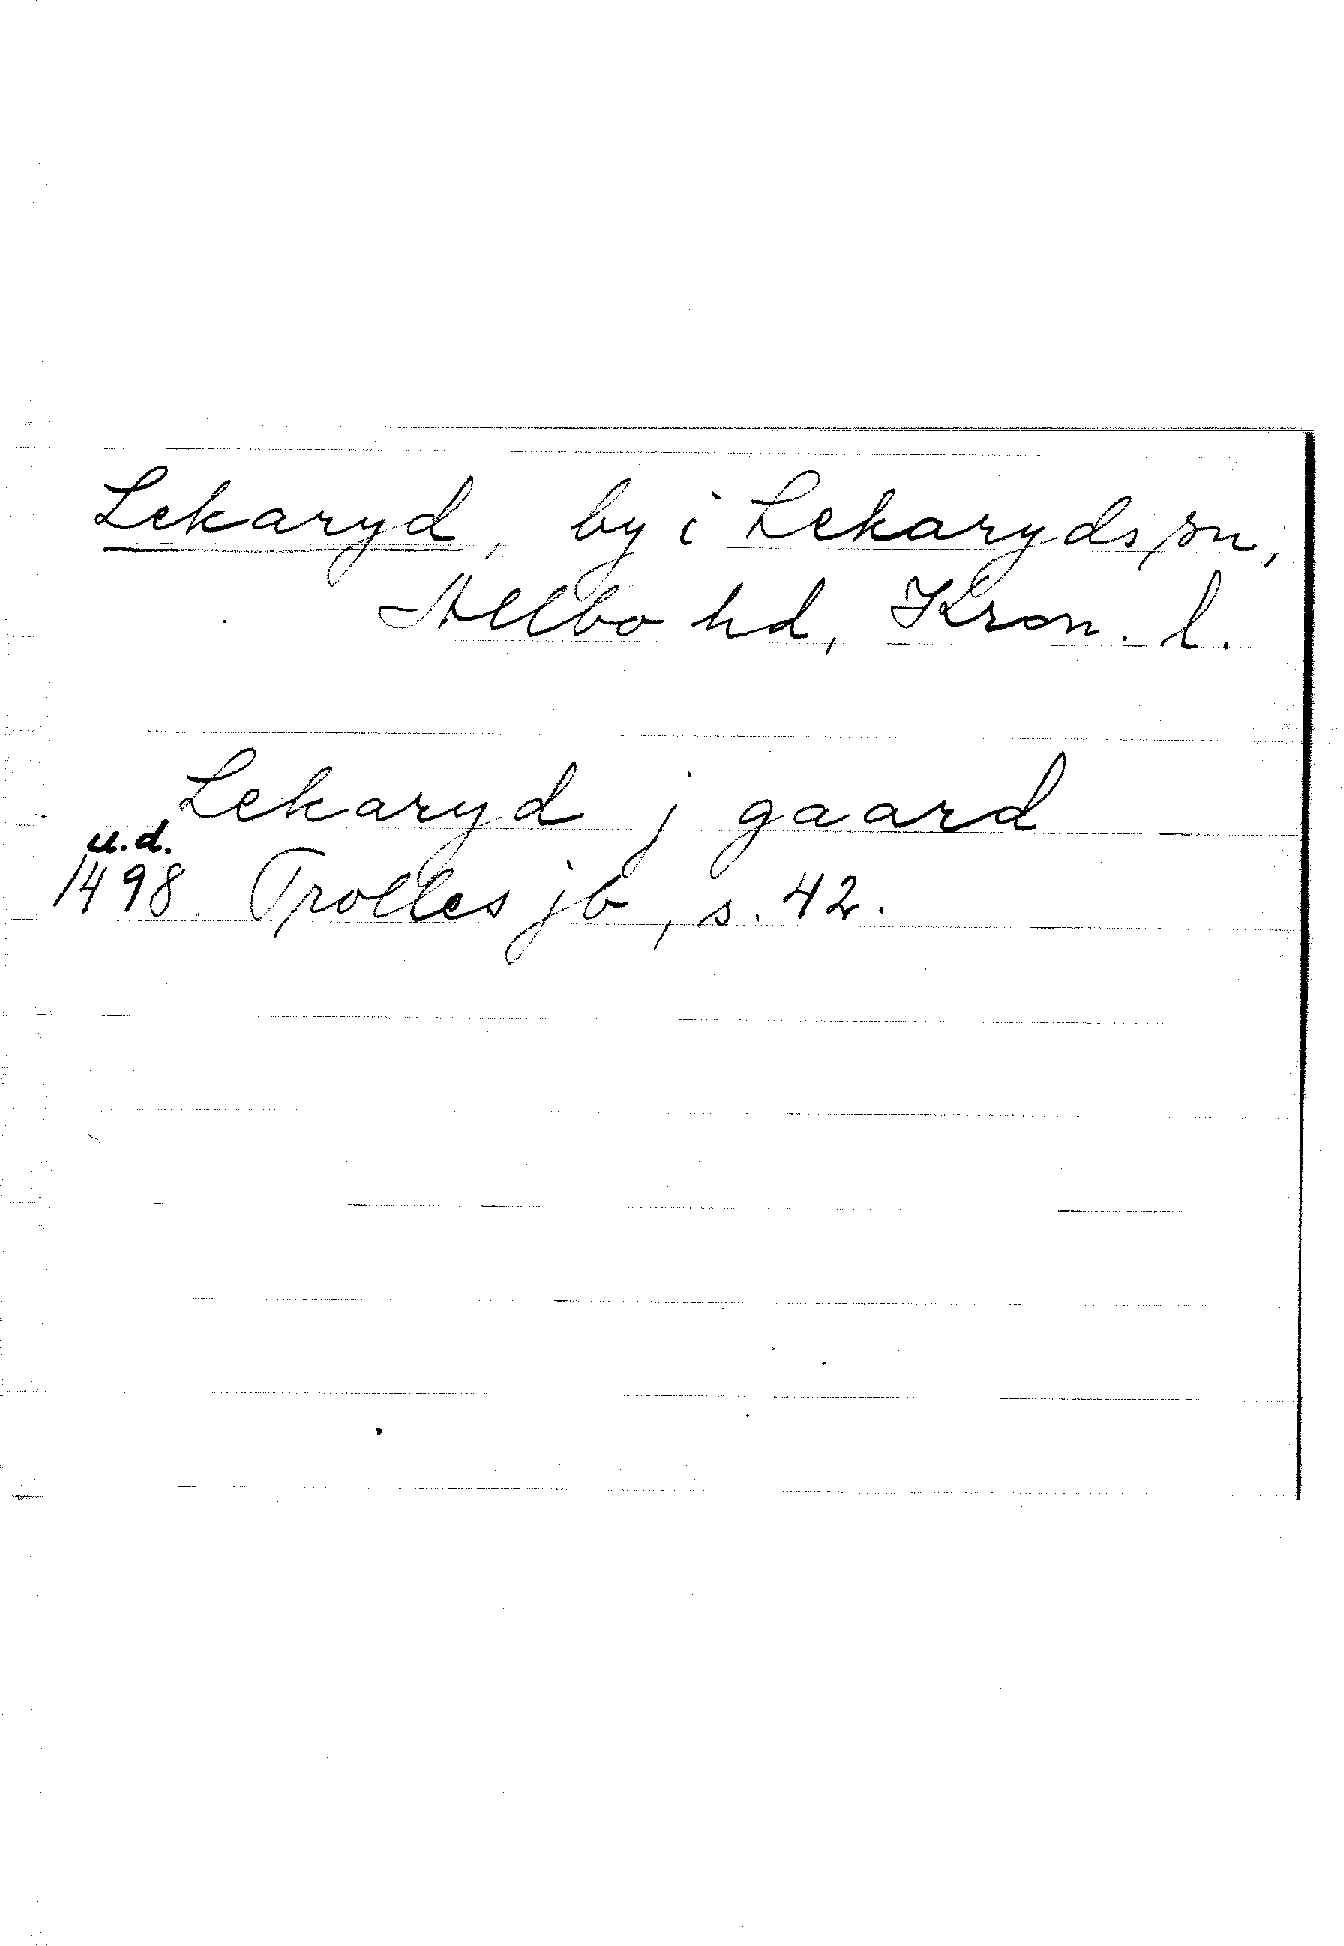 Lekaryd, by i Lekaryds sn,
Allbo hd, Kron. l.
Lekaryd j gaard
u.d.
1498 Trolles jb, s. 42.